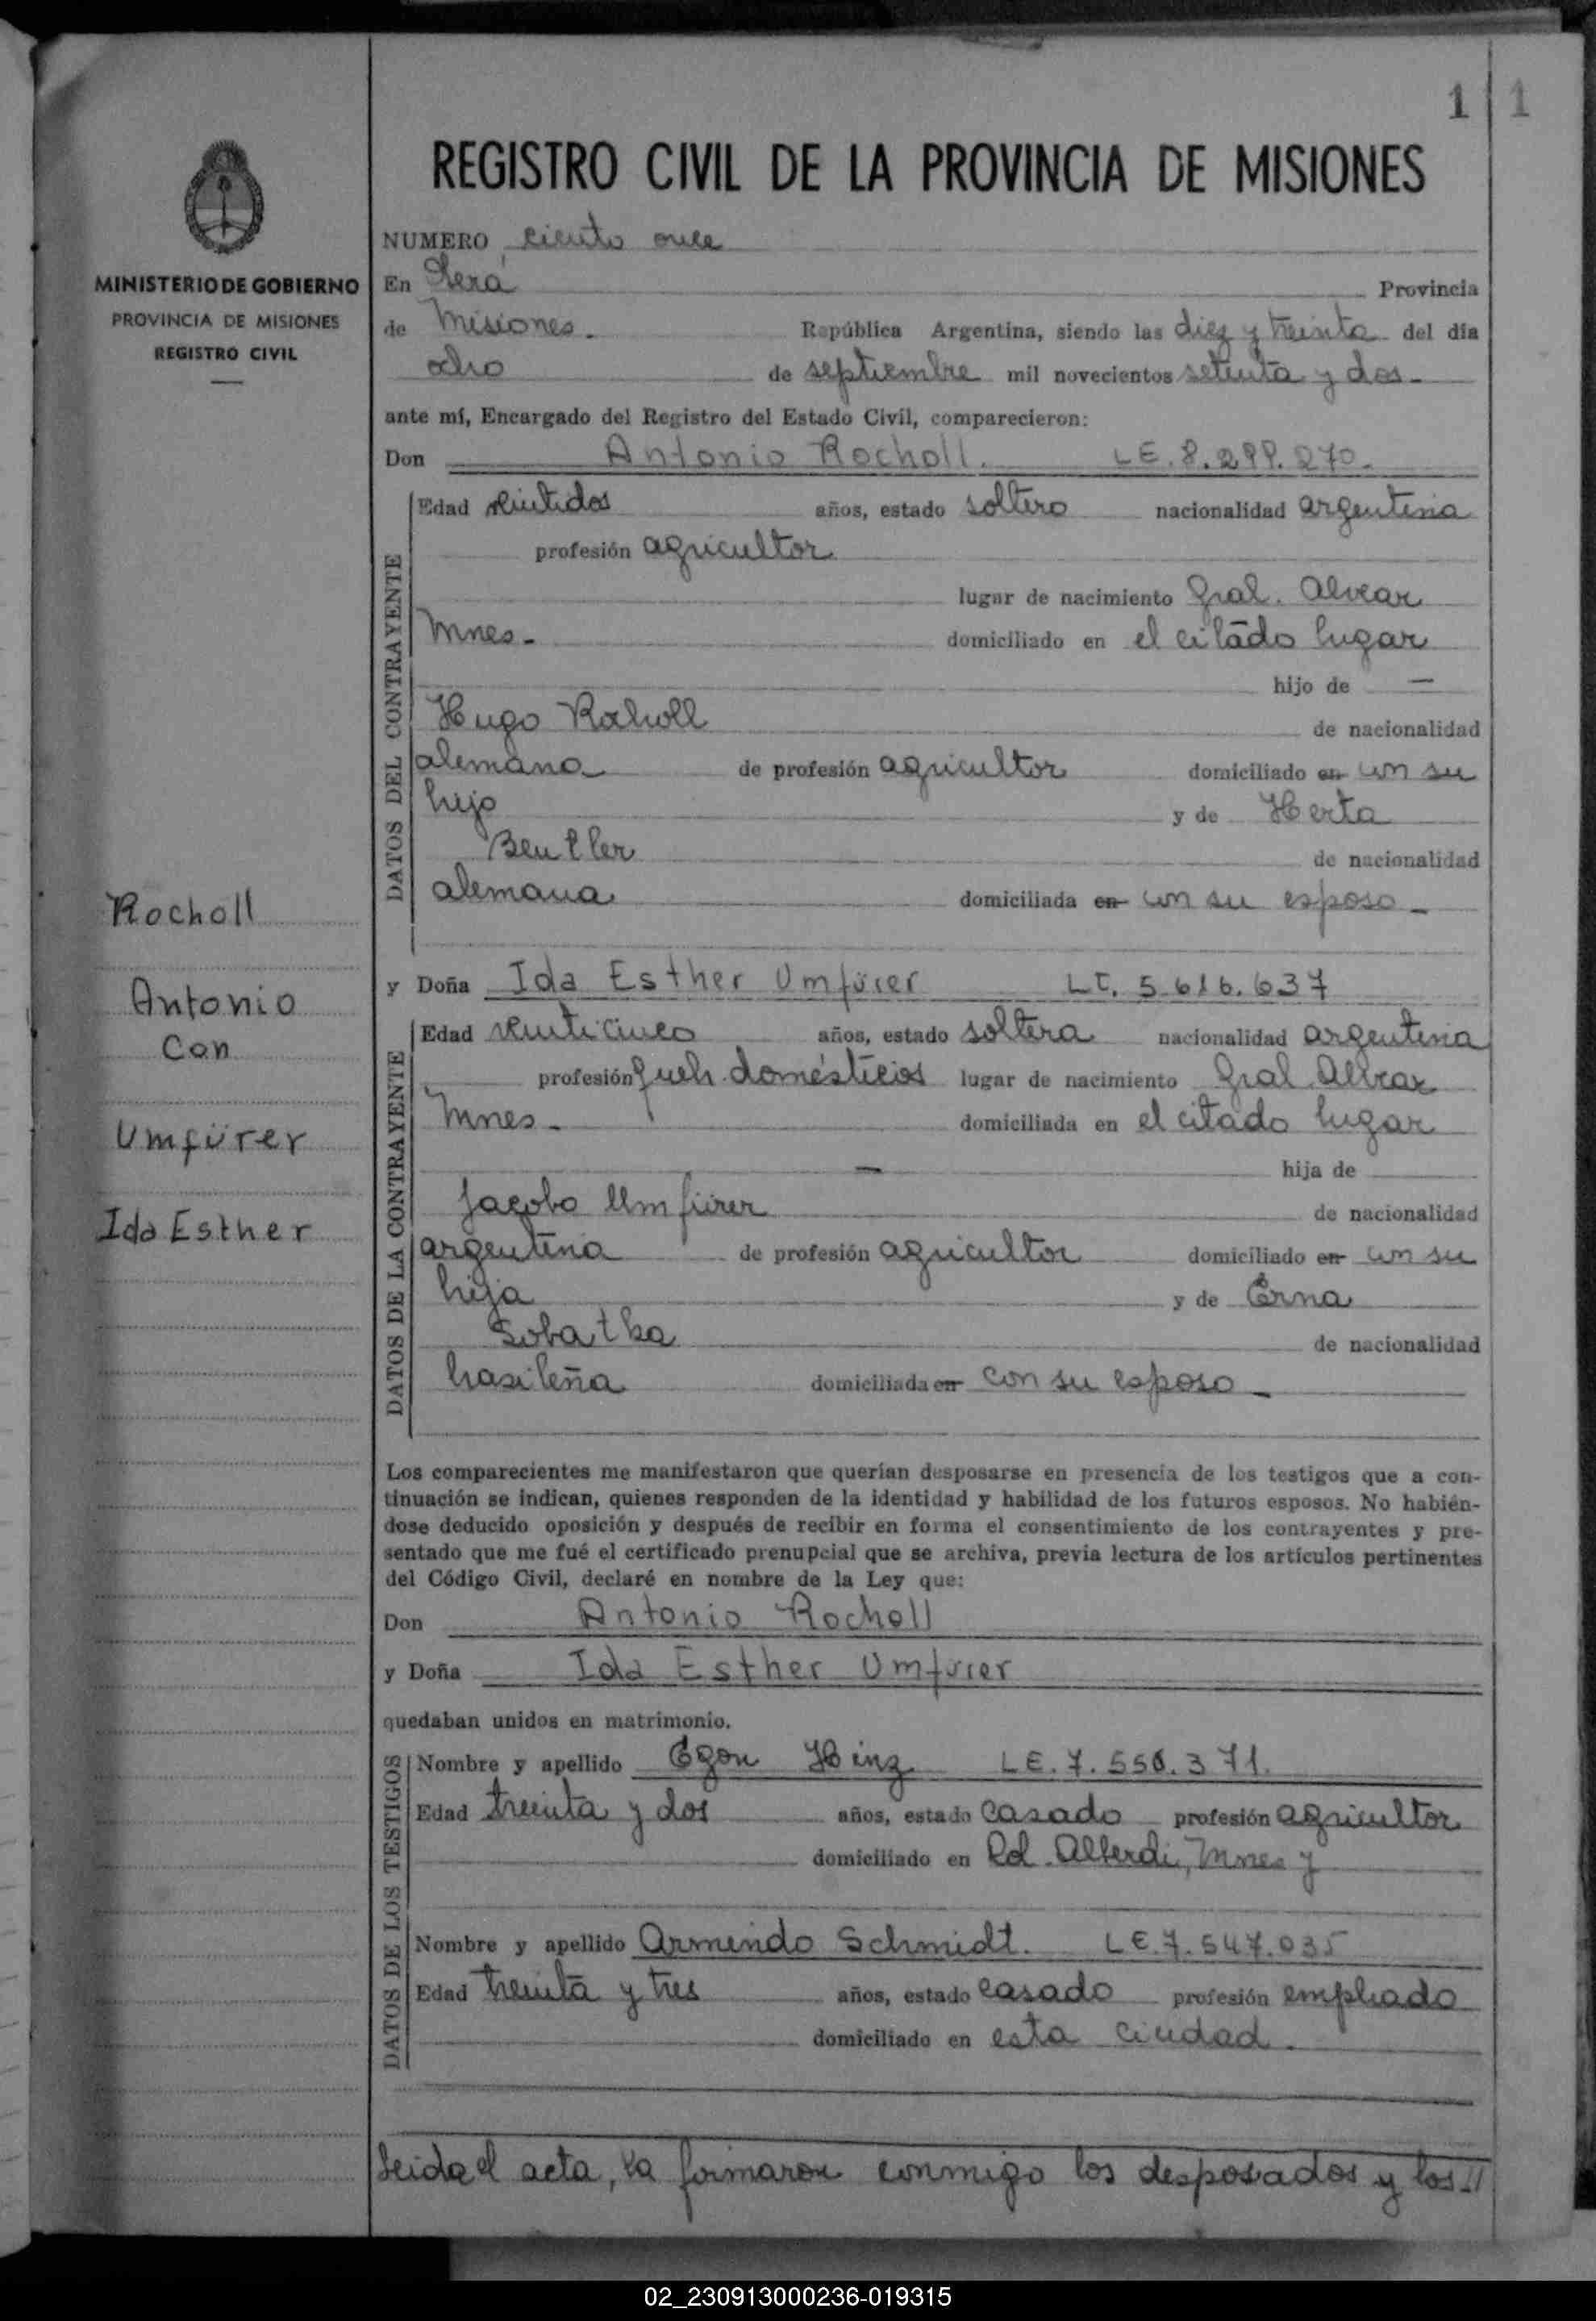 1 1
REGISTRO CIVIL DE LA PROVINCIA DE MISIONES
MINISTERIO DE GOBIERNO
PROVINCIA DE MISIONES
REGISTRO CIVIL
Rocholl
Antonio
Con
Umfürer
Ida Esther
NUMERO ciento once
En Oberá Provincia
de Misiones. República Argentina, siendo las diez y treinta del día
ocho de septiembre mil novecientos setenta y dos
ante mí, Encargado del Registro del Estado Civil, comparecieron:
Don Antonio Rocholl. LE. 8.299.270.
DATOS DEL CONTRAYENTE
Edad veintidos años, estado soltero nacionalidad argentina
profesión agricultor
lugar de nacimiento Gral. Alvear
Mnes. domiciliado en el citado lugar
hijo de —
Hugo Rocholl de nacionalidad
alemana de profesión agricultor domiciliado en con su
hijo y de Herta
Beutler de nacionalidad
alemana domiciliada en con su esposo
y Doña Ida Esther Umfürer LC. 5.616.637
DATOS DE LA CONTRAYENTE
Edad veinticinco años, estado soltera nacionalidad argentina
profesión queh. domésticos lugar de nacimiento Gral. Alvear
Mnes. domiciliada en el citado lugar
— hija de
Jacobo Umfürer de nacionalidad
argentina de profesión agricultor domiciliado en con su
hija y de Erna
Sobatka de nacionalidad
brasileña domiciliada en con su esposo
Los comparecientes me manifestaron que querían desposarse en presencia de los testigos que a con-
tinuación se indican, quienes responden de la identidad y habilidad de los futuros esposos. No habién-
dose deducido oposición y después de recibir en forma el consentimiento de los contrayentes y pre-
sentado que me fué el certificado prenupcial que se archiva, previa lectura de los artículos pertinentes
del Código Civil, declaré en nombre de la Ley que:
Don Antonio Rocholl
y Doña Ida Esther Umfürer
quedaban unidos en matrimonio.
DATOS DE LOS TESTIGOS
Nombre y apellido Egon Hinz LE. 7.556.371.
Edad treinta y dos años, estado casado profesión agricultor
domiciliado en Col. Alberdi, Mnes y
Nombre y apellido Armindo Schmidt. LE. 7.547.035
Edad treinta y tres años, estado casado profesión empleado
domiciliado en esta ciudad.
Leida el acta, la firmaron conmigo los desposados y los //
02_230913000236-019315